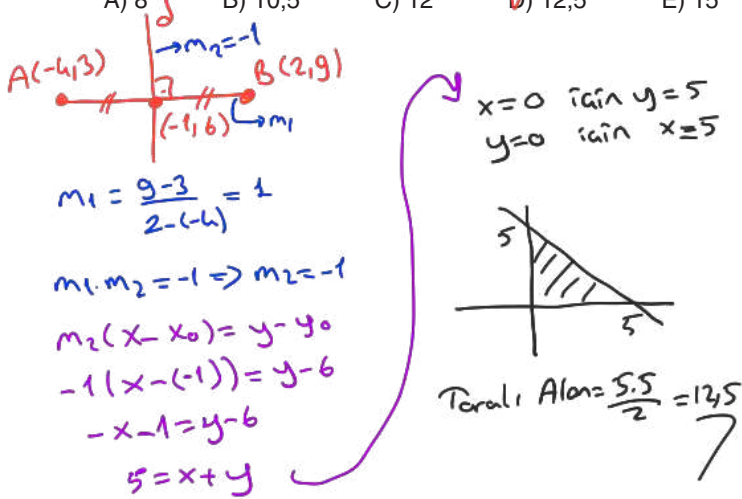 A) 8 B) 10,5 C) 12 D) 12,5 E) 15
d
m₂=-1
A(-4,3)
B(2,9)
(-1,6)
m₁
m₁ = \frac{9-3}{2-(-4)} = 1
m₁.m₂=-1 => m₂=-1
m₂(x-x₀)=y-y₀
-1(x-(-1))=y-6
-x-1=y-6
5=x+y
x=0 için y=5
y=0 için x=5
5
5
Taralı Alan= \frac{5.5}{2} =12,5